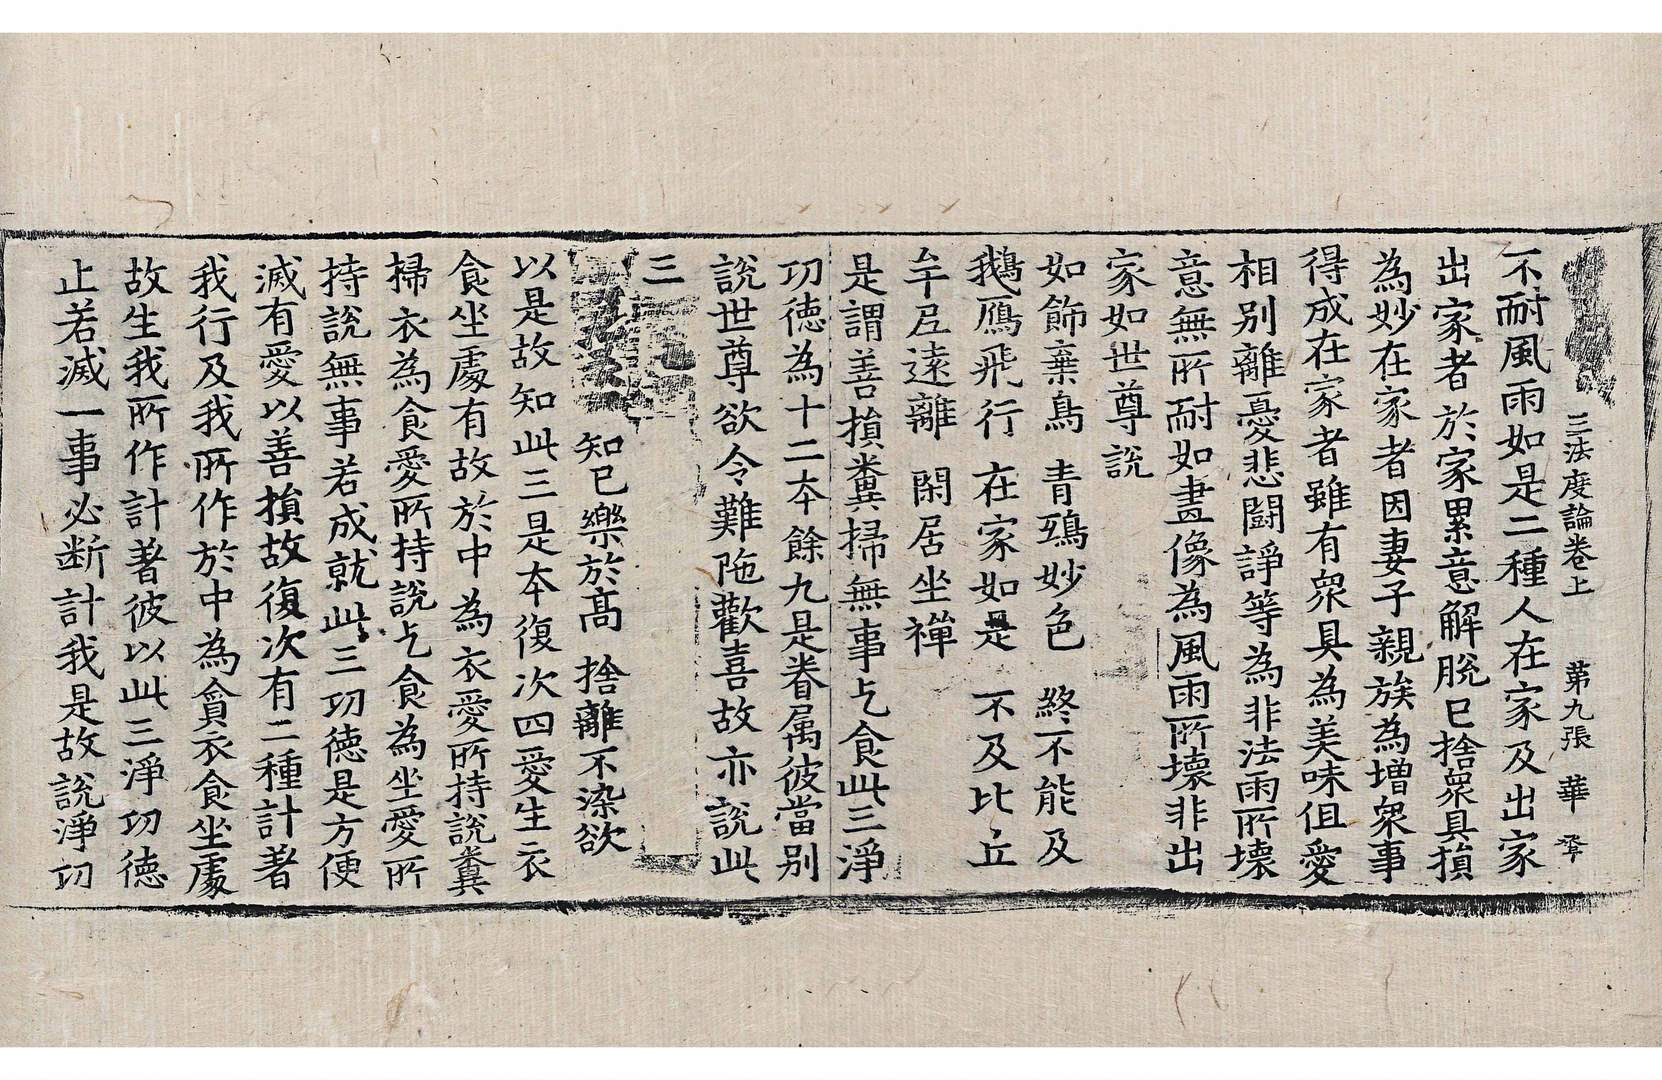 三法度論卷上 第九張 華
不耐風雨如是二種人在家及出家
出家者於家累意解脫已捨衆具損
為妙在家者因妻子親族為增衆事
得成在家者雖有衆具為美味但愛
相別離憂悲鬪諍等為非法雨所壞
意無所耐如畫像為風雨所壞非出
家如世尊說
如飾棄鳥 青鵛妙色 終不能及
鵝鴈飛行 在家如是 不及比丘
牟尼遠離 閑居坐禪
是謂善損糞掃無事乞食此三淨
功德為十二本餘九是眷属彼當別
說世尊欲令難陁歡喜故亦說此
三
知已樂於高 捨離不染欲
以是故知此三是本復次四愛生衣
食坐處有故於中為衣愛所持說糞
掃衣為食愛所持說乞食為坐愛所
持說無事若成就此三功德是方便
滅有愛以善損故復次有二種計著
我行及我所作於中為貪衣食坐處
故生我所作計著彼以此三淨功德
止若滅一事必断計我是故說淨功